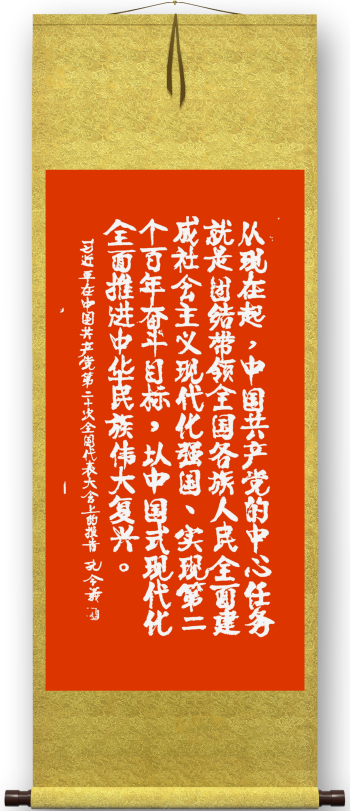 从现在起，中国共产党的中心任务
就是团结带领全国各族人民全面建
成社会主义现代化强国、实现第二
个百年奋斗目标，以中国式现代化
全面推进中华民族伟大复兴。
习近平在中国共产党第二十次全国代表大会上的报告 孔令